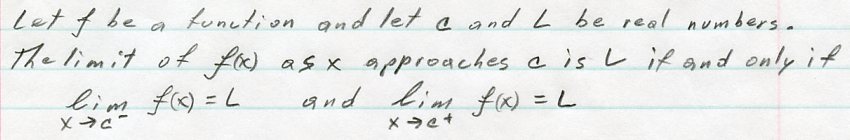 Let f be a function and let c and L be real numbers.
The limit of f(x) as x approaches c is L if and only if
lim x→c⁻ f(x) = L and lim x→c⁺ f(x) = L